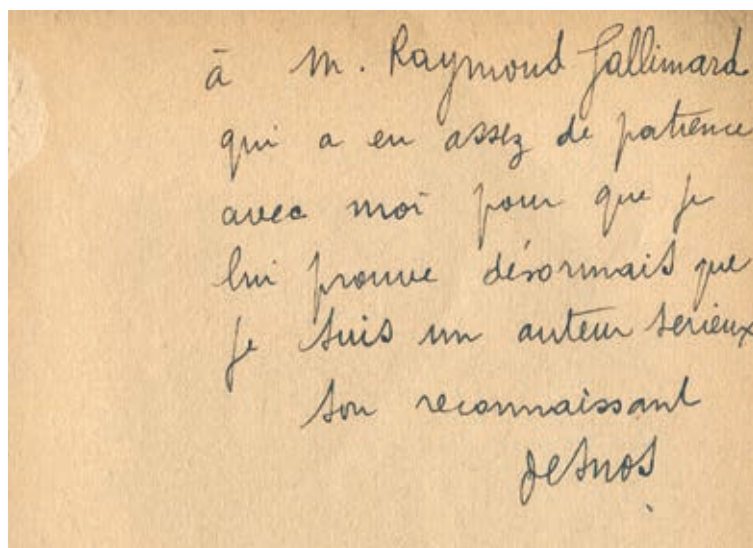 à M. Raymond Gallimard
qui a eu assez de patience
avec moi pour que je
lui prouve désormais que
je suis un auteur serieux
son reconnaissant
Desnos